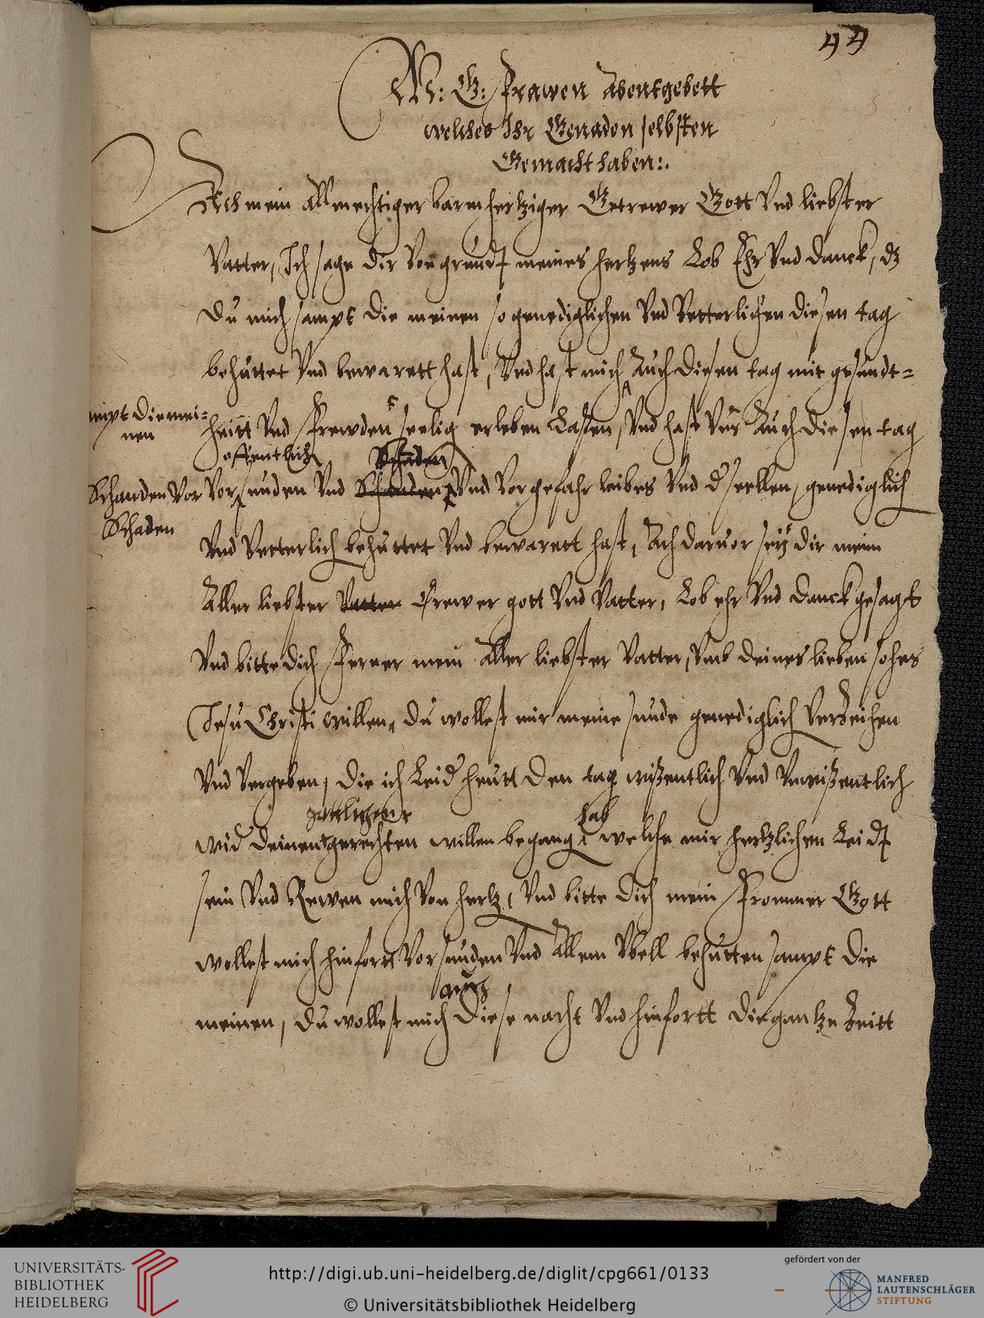 44
M: G: Frawen Abentgebett
welches Ihr Genaden selbsten
Gemacht haben:.
Ach mein Allmechtiger barmhertziger Getrewer Gott Vnd liebster
Vatter, Ich sage dir Von grundt meines hertzens Lob Ehr Vnd danck, dz
du mich sampt die meinen so genediglichen Vnd Vetterlichen diesen tag
behuttet Vnd bewarett hast, Vnd hast mich Auch diesen tag mit gesundt-
mpt die mei-
nen
heitt Vnd Frewden seelig erleben Lassen, Vnd hast Auch diesen tag
offentlich
Schaden
Schanden Vor
Schaden
Vor sunden Vnd Vnd Vor gefahr leibes Vnd d seellen, genediglich
Vnd Vetterlich behuttet Vnd bewarett hast, Ach daruor sey dir mein
Aller liebster Vatter Trewer gott Vnd Vatter, Lob ehr Vnd danck gesagt
Vnd bitte dich Ferner mein Aller liebster Vatter, Vmb deines lieben sohns
Jesu Christi willen, du wollest mir meine sunde genediglich Verzeihen
Vnd Vergeben, die ich Leid heutt den tag wißentlich Vnd Vnwißentlich
gottlichenn
hab
wid deinen gerechten willen begang welche mir hertzlichen Leidt
sein Vnd Rewen mich Von hertz, Vnd bitte dich mein Frommer Gott
wollest mich hinfort Vor sunden Vnd Allem Vbell behutten sampt die
auch
meinen, du wollest mich diese nacht Vnd hinfortt die gantze Zeitt
UNIVERSITÄTS-
BIBLIOTHEK
HEIDELBERG
http://digi.ub.uni-heidelberg.de/diglit/cpg661/0133
© Universitätsbibliothek Heidelberg
gefördert von der
MANFRED
LAUTENSCHLÄGER
STIFTUNG